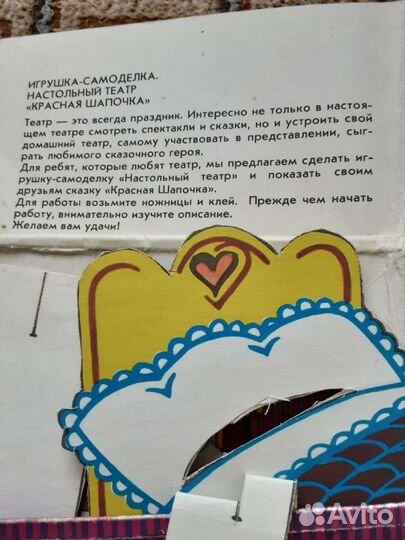 ИГРУШКА-САМОДЕЛКА.
НАСТОЛЬНЫЙ ТЕАТР
«КРАСНАЯ ШАПОЧКА»
Театр — это всегда праздник. Интересно не только в настоя-
щем театре смотреть спектакли и сказки, но и устроить свой
домашний театр, самому участвовать в представлении, сыг-
рать любимого сказочного героя.
Для ребят, которые любят театр, мы предлагаем сделать иг-
рушку-самоделку «Настольный театр» и показать своим
друзьям сказку «Красная Шапочка».
Для работы возьмите ножницы и клей. Прежде чем начать
работу, внимательно изучите описание.
Желаем вам удачи!
Avito